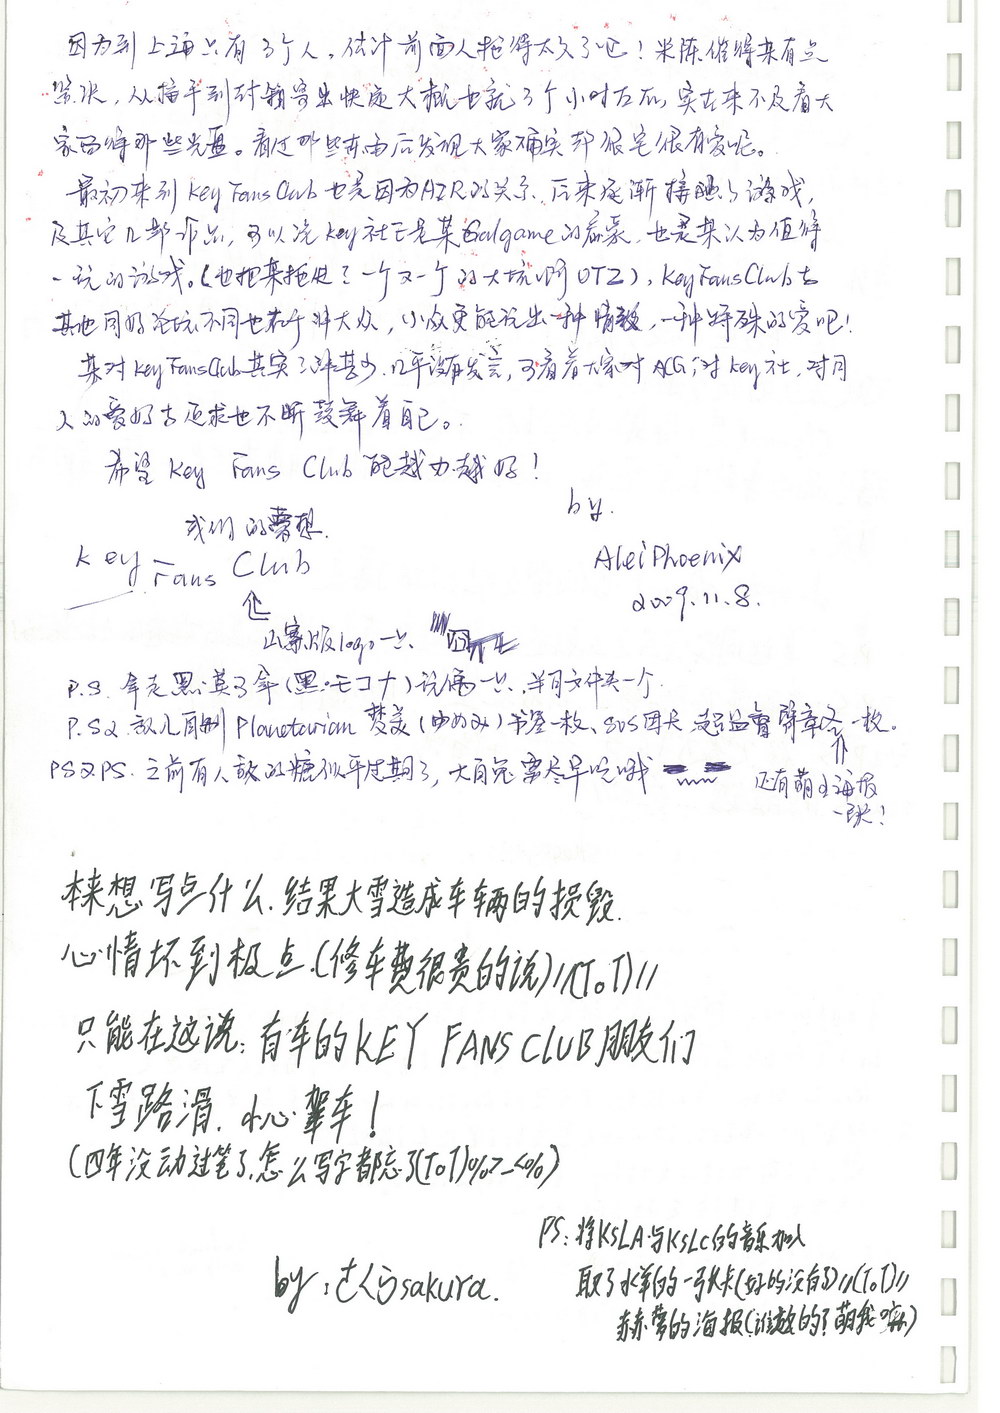 因为到上海只有3个人，估计前面人拖得太久了吧！米陈催得某有点
紧张，从接手到封箱寄出快递大概也就3个小时左右，实在来不及看大
家画得那些光盘。看过那些东西后发现大家确实都很宅很有爱呢。
最初来到Key Fans Club也是因为AIR的关系，后来逐渐接触了游戏，
及其它几部作品，可以说key社正是某Galgame的启蒙，也是某认为值得
一玩的游戏。(也把某拖进了一个又一个的大坑啊OTZ)，Key Fans Club与
其他同好论坛不同也在于非大众，小众更能玩出一种情致，一种特殊的爱吧！
某对Key Fans Club其实了解甚少，几乎没有发言，可看着大家对ACG，对key社，对同
人的爱好与追求也不断鼓舞着自己。
希望 Key Fans Club 能越办越好！
by.
我们的梦想.
Key Fans Club
AleiPhoenix
2009.11.8.
山寨版logo一只.
P.S. 拿走黑莫可拿(黑·モコナ)玩偶一只、半月文件夹一个.
P.S2. 放入自制Planetarian 梦美(ゆめみ)书签一枚、SOS团长 超监督 臂章一枚。
PS2.PS. 之前有人放的糖似乎过期了，大白兔需尽早吃哦
还有萌王海报
一张！
本来想写点什么.结果大雪造成车辆的损毁.
心情坏到极点.(修车费很贵的说)//(ToT)//
只能在这说: 有车的KEY FANS CLUB朋友们
下雪路滑. 小心驾车！
(四年没动过笔了.怎么写字都忘了(ToT)%>_<%)
PS: 将KSLA与KSLC的音乐加入
by: さくらsakura.
取了水羊的一张卡(好的没有了)//(ToT)//
赫萝的海报(谁放的？萌我嘛)